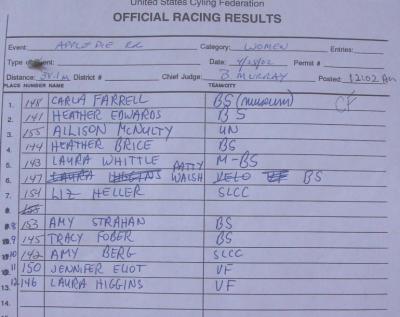 United States Cyling Federation
OFFICIAL RACING RESULTS
Event: APPLE PIE RR Category: WOMEN Entries:
Type of Event: Date: 4/28/02 Permit #
Distance: 38.1m District # Chief Judge: B MURRAY Posted: 12:02 Pm
PLACE NUMBER NAME TEAM/CITY
1. 148 CARLA FARRELL BS (museum) CF
2. 141 HEATHER EDWARDS BS
3. 155 ALLISON McNULTY UN
4. 144 HEATHER BRICE BS
5. 143 LAURA WHITTLE M-BS
6. 147 LAURA HIGGINS PATTY WALSH VELO VF BS
7. 154 LIZ HELLER SLCC
8. 153
8 153 AMY STRAHAN BS
9 145 TRACY FOBER BS
10 142 AMY BERG SLCC
11 150 JENNIFER ELIOT VF
13. 12 146 LAURA HIGGINS VF
14.